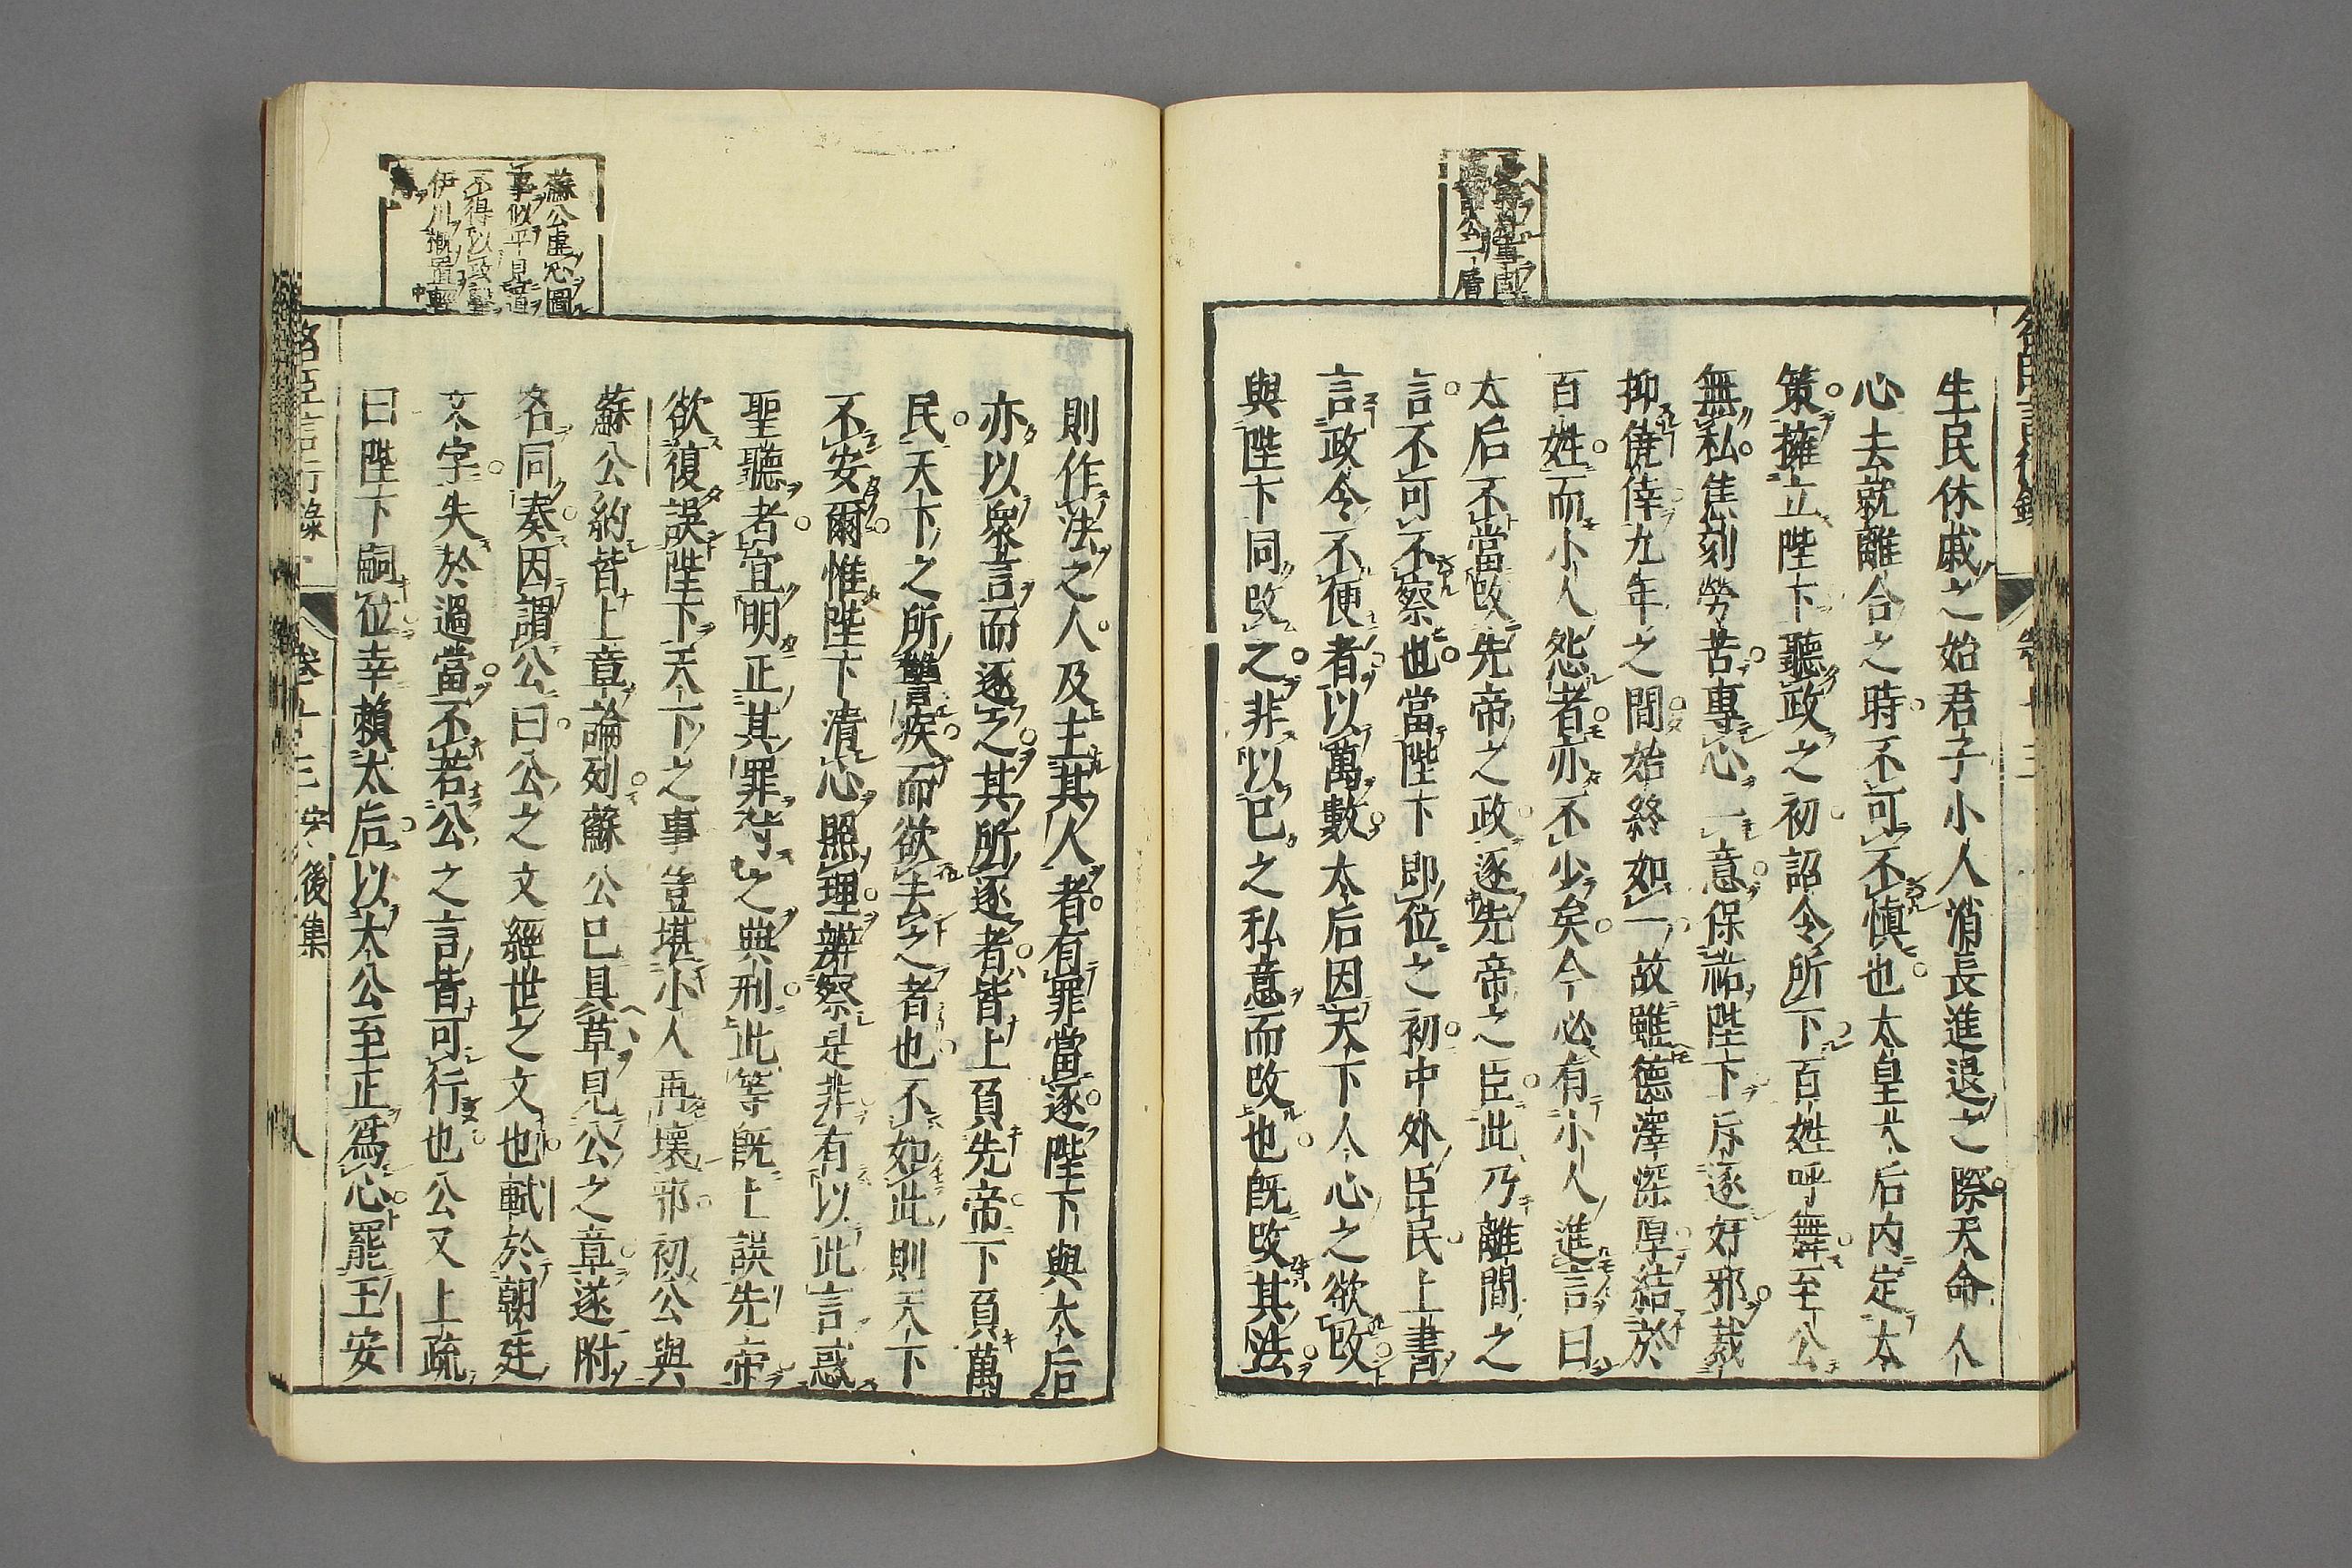 生民休戚之始君子小人消長進退之際天命人
心去就離合之時不可不慎也太皇太后内定太
策擁立陛下聽政之初詔令所下百姓呼舞至公
無私焦刻勞苦專心一意保祐陛下斥逐奸邪裁
抑僥倖九年之間始終如一故雖德澤深厚結於
百姓而小人怨者亦不少矣今必有小人進言曰
太后不當改先帝之政逐先帝之臣此乃離間之
言不可不察也當陛下即位之初中外臣民上書
言政令不便者以萬數太后因天下人心之欲改
與陛下同改之非以己之私意而改也既改其法
則作法之人及主其人者有罪當逐陛下與太后
亦以衆言而逐之其所逐者皆上負先帝下負萬
民天下之所讐疾而欲去之者也不如此則天下
不安爾惟陛下清心照理辨察是非有以此言惑
聖聽者宜明正其罪付之典刑此等既上誤先帝
欲復誤陛下天下之事豈堪小人再壞邪初公與
蘇公約皆上章論列蘇公已具草見公之章遂附
名同奏因謂公曰公之文經世之文也軾於朝廷
文字失於過當不若公之言皆可行也公又上疏
曰陛下嗣位幸賴太后以太公至正爲心罷王安
名臣言行錄 卷十三 宋 後集 八
蘇公虚心圖
事似平見道
不得以
伊川概置輕